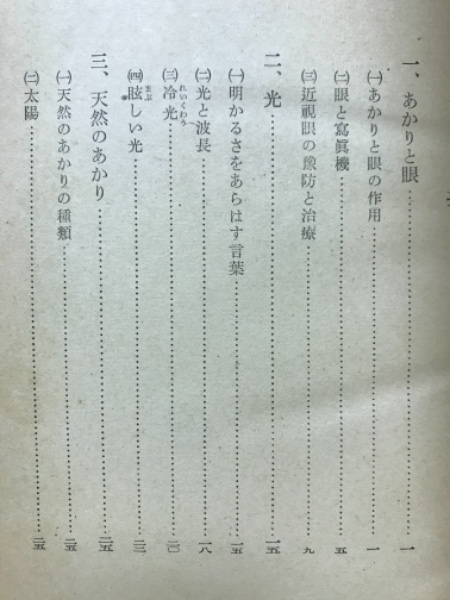 一、あかりと眼……………一
㈠あかりと眼の作用……………一
㈡眼と寫眞機……………五
㈢近視眼の豫防と治療……………九
二、光……………一五
㈠明かるさをあらはす言葉……………一五
㈡光と波長……………一八
㈢冷光……………二〇
れいくわう
㈣眩しい光……………二三
まぶ
三、天然のあかり……………二五
㈠天然のあかりの種類……………二五
㈡太陽……………二五